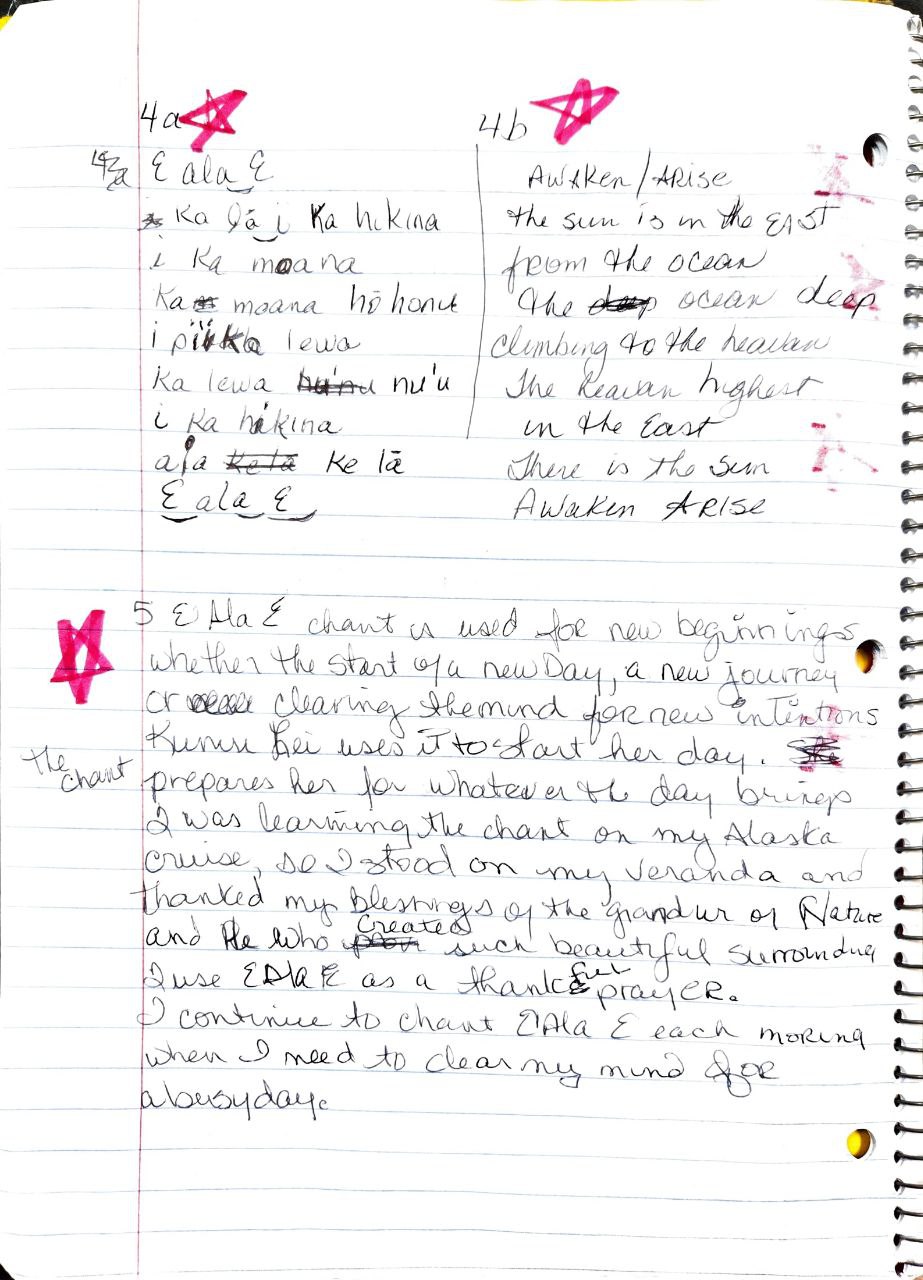 4a
E ala E
Ka lā i Ka hikina
i Ka moana
Ka moana hō honu
i pii Ka lewa
Ka lewa nu'u
i Ka hikina
aia Ke lā
E ala E
4b
AWAKEN/ARISE
the sun is in the EAST
from the ocean
the ocean deep
climbing to the heavan
The heavan highest
in the East
There is the sun
AWAKEN ARISE
5 E Ala E chant is used for new beginnings
whether the start of a new Day, a new journey
or clearing the mind for new intentions
Kumu Lei uses it to start her day.
The chant
prepares her for whatever the day brings
I was learning the chant on my Alaska
cruise, so I stood on my veranda and
thanked my Blessings of the grandur of Nature
and He who created such beautiful surrounding
I use E Ala E as a thankful prayER.
I continue to chant E Ala E each moRning
when I need to clear my mind foR
a busy day.